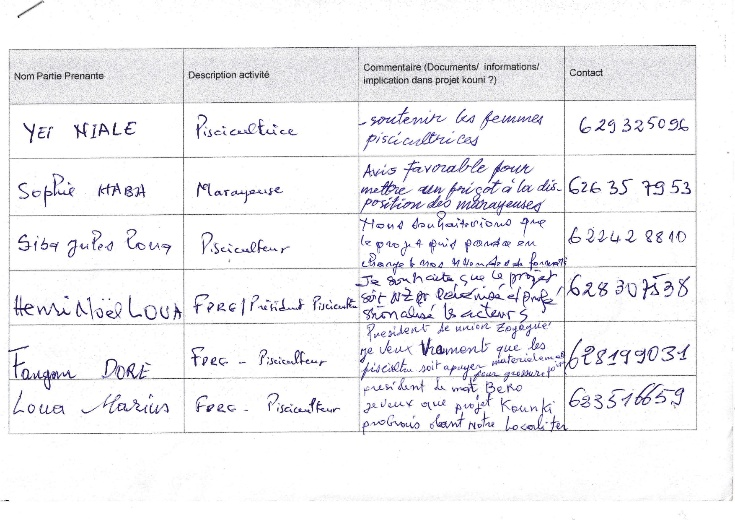 Nom Partie Prenante
Description activité
Commentaire (Documents/ informations/
implication dans projet kouni ?)
Contact
Yei NIALE
Piscicultrice
- soutenir les femmes
piscicultrices
629325096
Sophie HABA
Marayeuse
Avis favorable pour
mettre un frigot à la dis-
position des marayeuses
626 35 79 53
Siba Jules Loua
Pisciculteur
Nous souhaiterions que
le projet puis prendre en
change nos de formati
62242 8810
Henri Noël LOUA
FPRG/Président Piscicult
Je souhaite que le projet
soit et profe
sionalisé le acteurs
628307538
Fangam DORE
FPRG - Pisciculteur
President de union Zogogué
je veux Vrament que les
piscicultu soit apuyer materielement
pour
628199031
Loua Marius
FPRG - Pisciculteur
president de mat Bero
je veux que projet Kounki
dant Notre Localiter